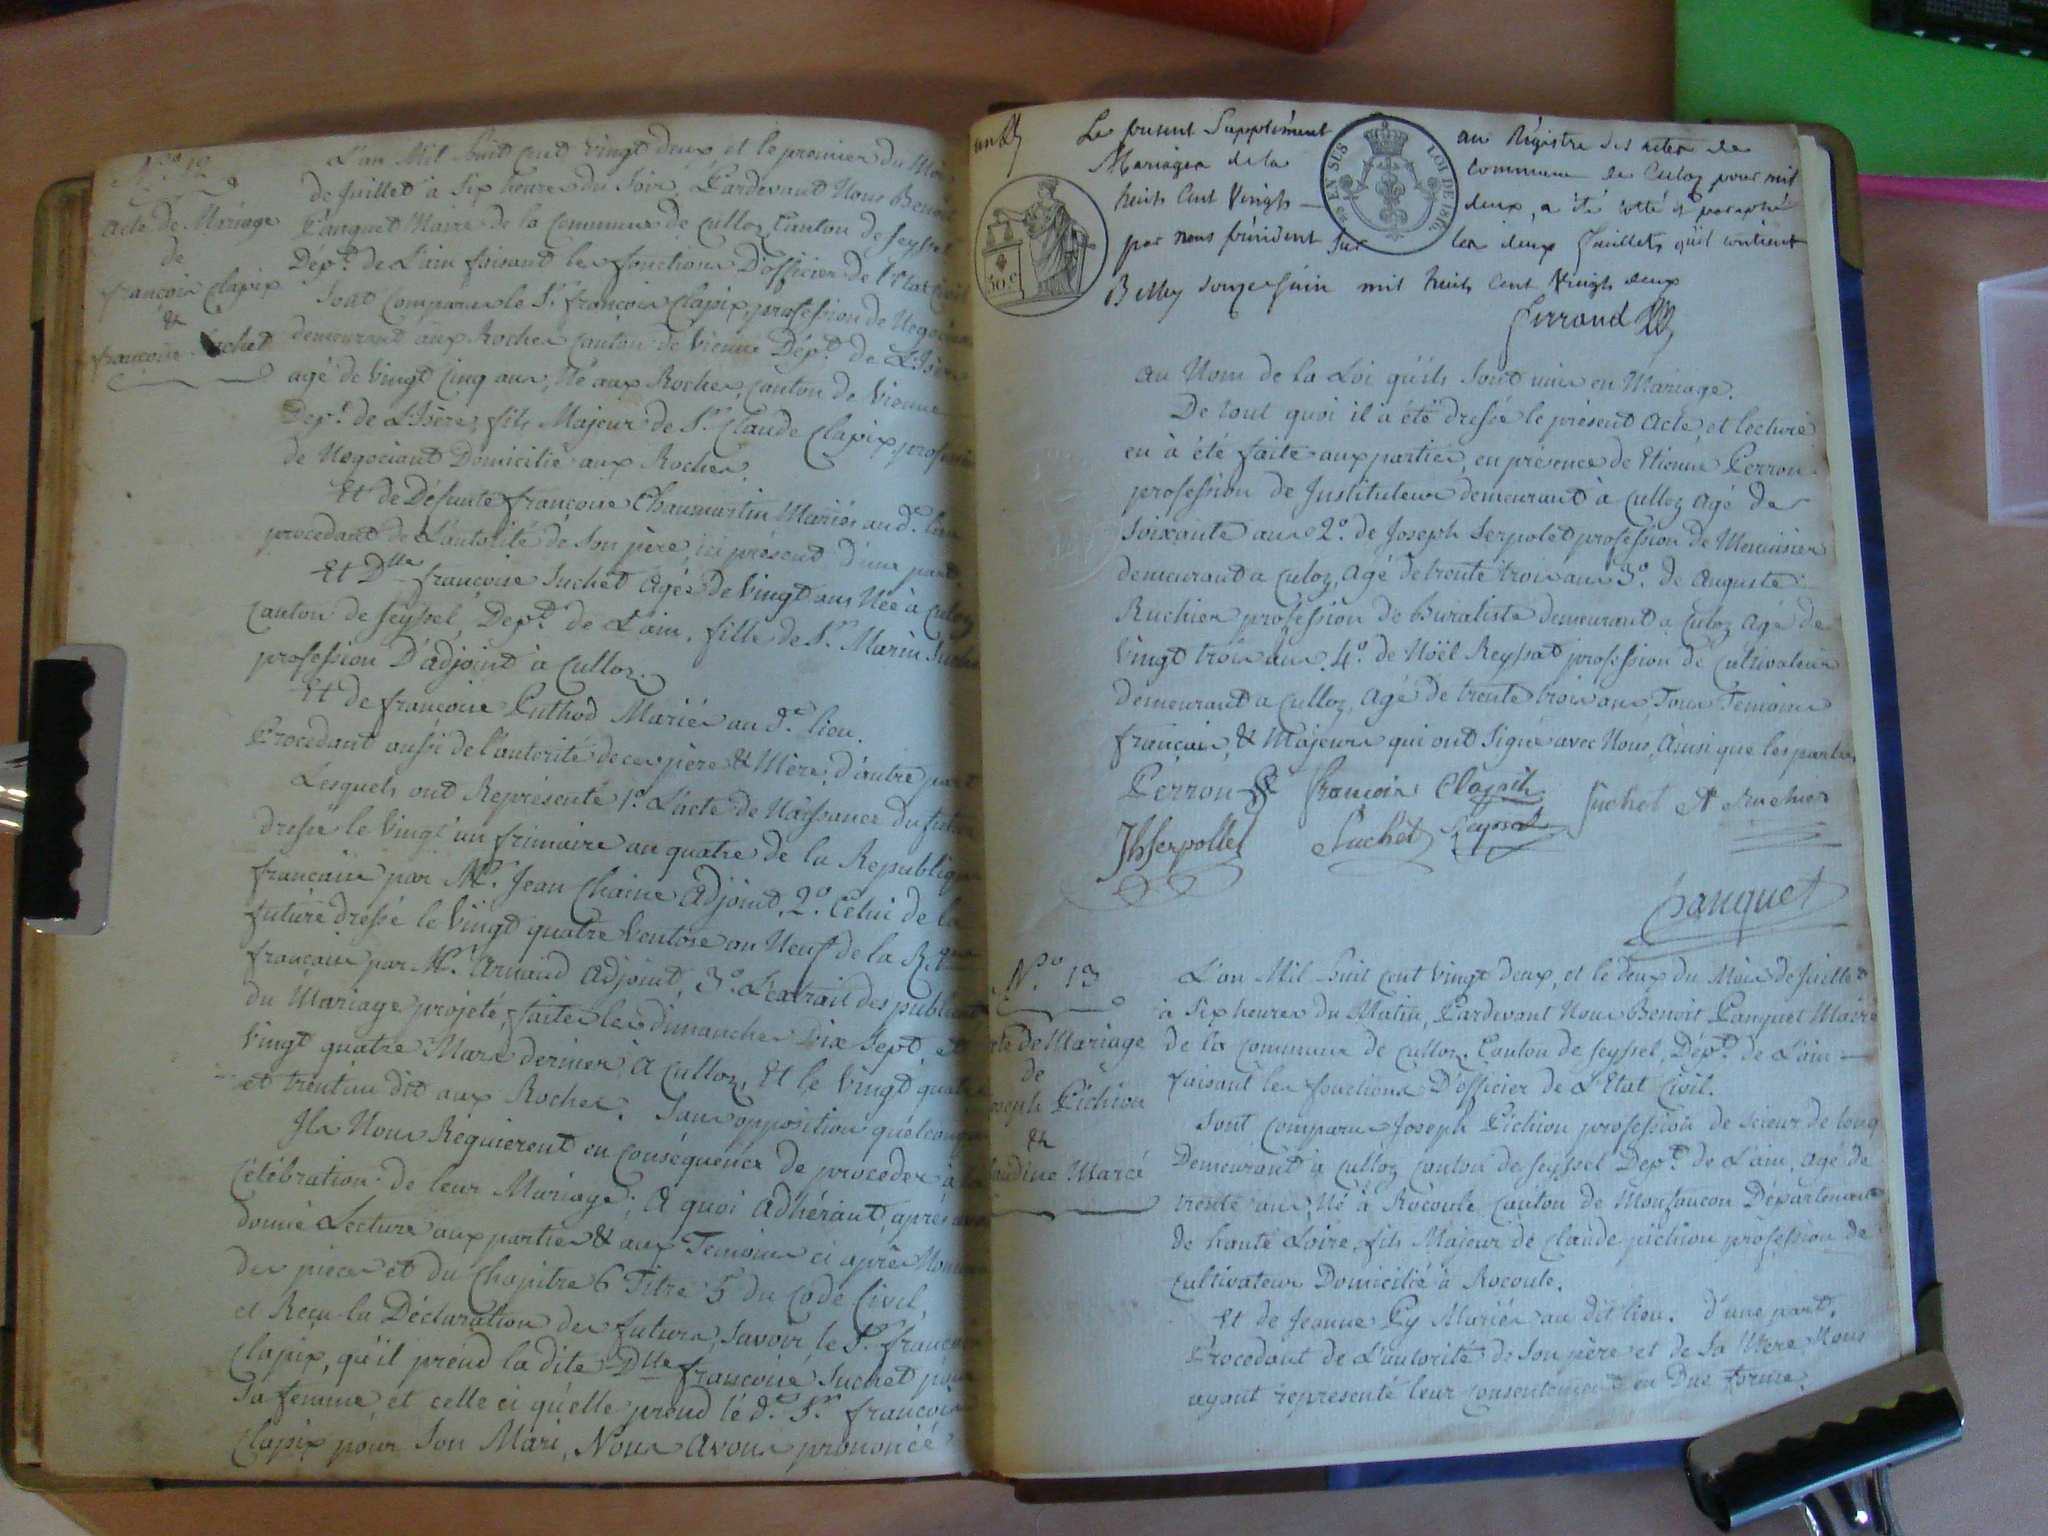 N.º 12
Acte de Mariage
de
françois Clapix
&
françoise Suchet
L'an Mil huit cent vingt deux et le premier du Mois
de Juillet à Six heures du Soir, Pardevant Nous Benoit
Panquet Maire de la Commune de Culloz Canton de Seyssel
Dép.t de L'ain faisant les fonctions D'officier de l'Etat Civil
Sont Comparus le S.r françois Clapix, profession de Negociant
demeurant aux Roches canton de Vienne Dép.t de L'Isère
agé de vingt Cinq ans, Né aux Roches, Canton de Vienne
Dep.t de L'Isère, fils Majeur de S.r Claude Clapix, profession
de Negociant Domicilié aux Roches.
Et de Défunte françoise Chaumartin Mariés au d.t lieu
procedant de L'autorité de Son père, ici présent d'une part.
Et D.lle françoise Suchet Agée de Vingt ans Née à Culoz
Canton de Seyssel, Dep.t de L'ain, fille de S.r Marin Suchet
profession D'adjoint à Culloz.
Et de françoise Puthod Mariés au d.t lieu.
Procedant aussi de l'autorité de ces père & Mère, d'autre part
Lesquels ont Représenté 1.º L'acte de Naissance du futur
dressé le Vingt un frimaire an quatre de la Republique
francaise par M.r Jean Chaine Adjoint, 2.º Celui de la
future dressé le Vingt quatre Ventose an Neuf de la R.que
francaise par M.r Arnaud Adjoint, 3.º L'extrait des publications
du Mariage projeté, faites les dimanches Dix Sept, et
Vingt quatre Mars dernier à Culloz, Et le Vingt quatre
et trentiun dit aux Roches. Sans opposition quelconque
Ils Nous Requierent en conséquence de proceder à la
Célébration de leur Mariage; A quoi Adhérant, après avoir
donné Lecture aux parties & aux Temoins ci après Nommés
des pieces et du Chapitre 6 Titre 5 du Code Civil,
et Reçu la Déclaration des futurs, Savoir le S.r françois
Clapix, qu'il prend la dite D.lle françoise Suchet pour
Sa femme, et celle ci qu'elle prend lé d.t S.r francois
Clapix pour Son Mari, Nous avons prononcé
Le présent Supplément au Régistre des actes de
Mariages de la commune de Culoz pour mil
huit Cent Vingt deux, a été cotté & paraphé
par nous président Sur les deux feuillets qu'il contient
Belley douze juin mil huit Cent Vingt deux
Ferrand
EN SUS
LOI DE 1816
50.c
au Nom de la Loi qu'ils Sont unis en Mariage.
De tout quoi il a été dressée le présent Acte, et lecture
en à été faite aux parties, en présence de Etienne Perron
profession de Instituteur demeurant à Culloz Agé de
Soixante ans 2.º de Joseph Serpolet profession de Menuisier
demeurant a Culoz, Agé de trente trois ans 3.º de Auguste
Ruchier profession de Buraliste demeurant a Culoz Agé de
Vingt trois ans 4.º de Nöel Reyssat profession de Cultivateur
demeurant a Culloz, Agé de trente trois ans Tous Temoins
francais, & Majeurs qui ont Signé avec Nous, Ainsi que les parties
Perron françois Clapix Suchet A Ruchier
Jh Serpollet Suchet Reyssat
Panquet
N.º 13
Acte de Mariage
de
Joseph Pichion
&
Claudine Marcé
L'an Mil huit cent Vingt deux, et le deux du Mois de Juillet
à Six heures du Matin, Pardevant Nous Benoit Panquet Maire
de la Commune de Culloz, Canton de Seyssel, Dép.t de L'ain
faisant les fonctions D'officier de L'Etat Civil.
Sont comparus Joseph Pichion profession de Scieur de long
Demeurant à Culloz canton de Seyssel Dep.t de L'ain, agé de
trente ans, Né à Rocoule Canton de Monfaucon Département
de haute Loire, fils Majeur de Claude pichion profession de
Cultivateur Domicilié à Rocoute.
Et de Jeanne Py Mariés au dit lieu. d'une part.
Procedant de L'autorité de Son père et de Sa Mere Nous
ayant representé leur Consentement en Due forme.